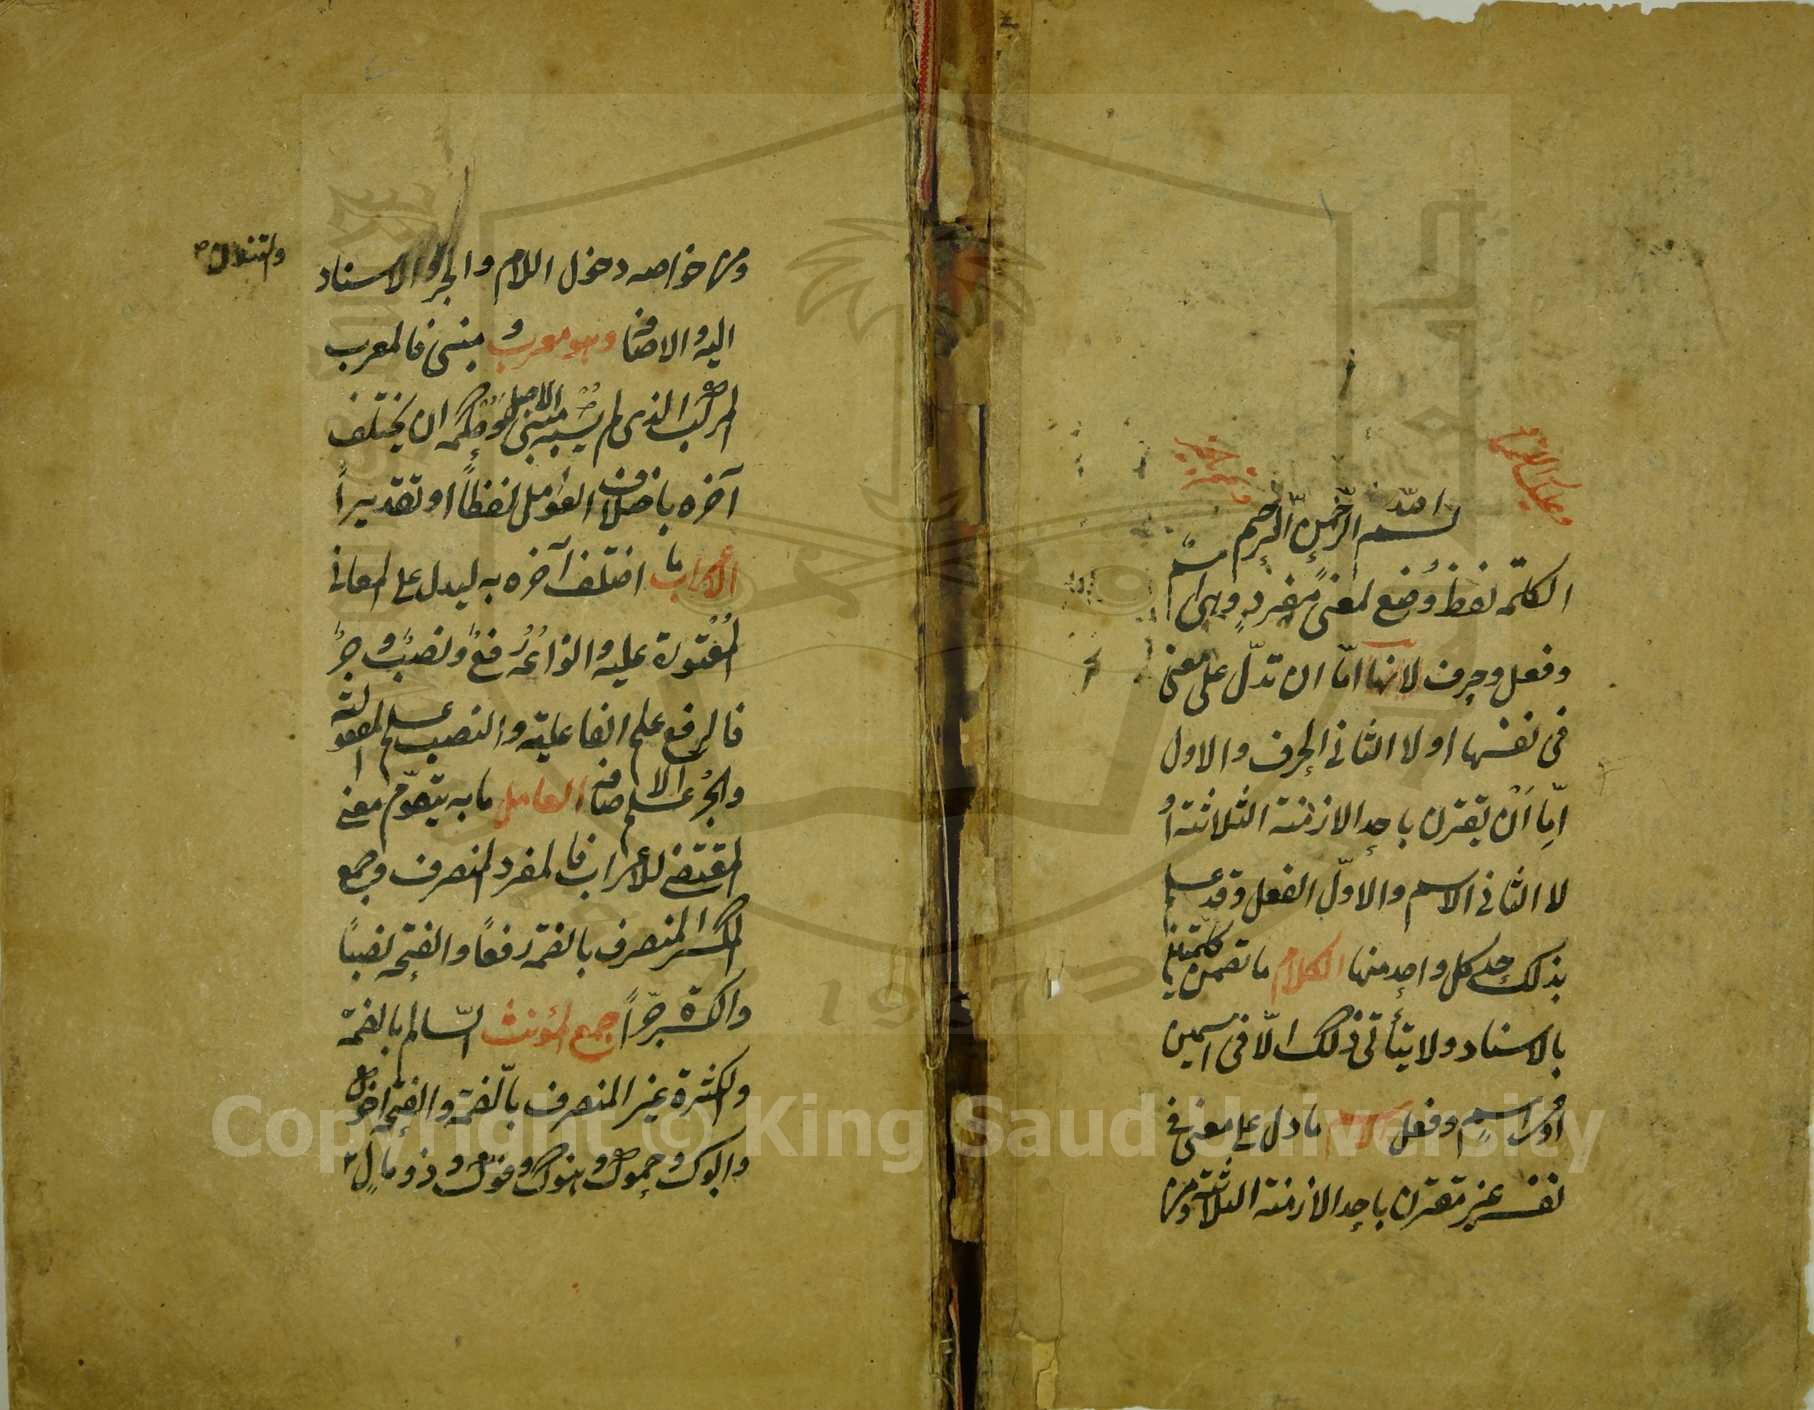 وعليك الاتمام
وتمم بخير
بسم الله الرّحمن الرّحيم
الكلمة لفظ وُضع لمعنىً مفردٍ وهى اسمٌ
وفعل وحرف لانها امّا ان تدلّ على معنى
فى نفسها او لا الثانى الحرف والاول
امّا اَنْ يقترن باحد الازمنة الثلاثة اوْ
لا الثانى الاسم والاوّل الفعل وقد علم
بذلك حد كل واحد منها الكلام ما تضمن كلمتين
بالاسناد ولا يتأتى ذلك الّا فى اسمين
اوْ اسمٍ وفعل الاسم ما دل على معنى فى
نفسه غير مقترن باحد الازمنة الثلاثة ومن
ومن خواصه دخول اللام والجر والاسناد
والتنوين
اليه والاضافة وهو معرب و مبنى فالمعرب
المركب الذى لم يُشبه مبنى الاصل وحكمه ان يختلف
آخره باختلاف العوامل لفظاً او تقديراً
الأعراب ما اختلف آخره به ليدل على المعانى
المُعْتَورة عليه وانواعُه رُفعٌ ونصبٌ وجرٌّ
فالرفع علم الفاعلية والنصب علم المفعولية
والجرُّ علم الاضافة العامل ما به يتقوّم معنى
المقتضى للأعراب فالمفرد المنصرف وجمع
المكسر المنصرف بالضمة رفعًا والفتحة نصبًا
والكسرة جرّاً جمع المؤنث السّالم بالضمة
والكسرة غير المنصرف بالّضمة والفتحة اخوك
وابوك وحموك وهنوك وفوك وذو مالٍ